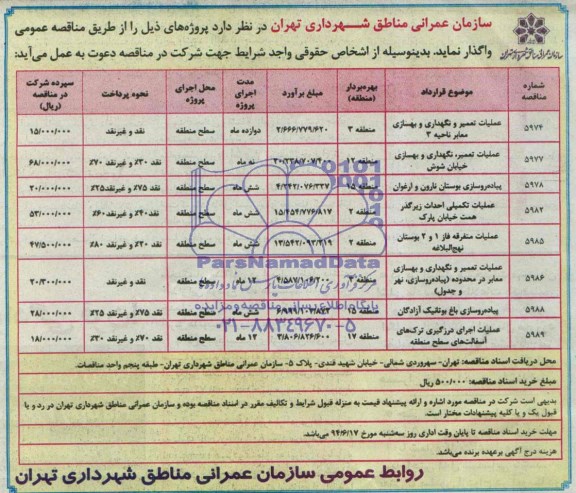 سازمان عمرانی مناطق شهرداری تهران در نظر دارد پروژه‌های ذیل را از طریق مناقصه عمومی
واگذار نماید. بدینوسیله از اشخاص حقوقی واجد شرایط جهت شرکت در مناقصه دعوت به عمل می‌آید:
شماره مناقصه | موضوع قرارداد | بهره‌بردار (منطقه) | مبلغ برآورد | مدت اجرای پروژه | محل اجرای پروژه | نحوه پرداخت | سپرده شرکت در مناقصه (ریال)
۵۹۷۴ | عملیات تعمیر و نگهداری و بهسازی معابر ناحیه ۳ | منطقه ۳ | ۲/۶۶۶/۷۷۹/۶۲۰ | دوازده ماه | سطح منطقه | نقد و غیرنقد | ۱۵/۰۰۰/۰۰۰
۵۹۷۷ | عملیات تعمیر، نگهداری و بهسازی خیابان شوش | منطقه ۱۲ | نه ماه | سطح منطقه | نقد ۳۰٪ و غیرنقد ۷۰٪ | ۶۸/۰۰۰/۰۰۰
۵۹۷۸ | پیاده‌روسازی بوستان نارون و ارغوان | ۴/۲۴۲/۰۷۶/۳۳۷ | شش ماه | سطح منطقه | نقد ۷۵٪ و غیرنقد۲۵٪ | ۲۰/۰۰۰/۰۰۰
۵۹۸۲ | عملیات تکمیلی احداث زیرگذر همت خیابان پارک | منطقه ۲ | ۱۵/۴۵۴/۷۷۶/۸۱۷ | شش ماه | سطح منطقه | نقد۴۰٪ و غیرنقد۶۰٪ | ۵۳/۰۰۰/۰۰۰
۵۹۸۵ | عملیات متفرقه فاز ۱ و ۲ بوستان نهج‌البلاغه | منطقه ۲ | ۱۳/۵۴۲/۰۹۲/۳۱۹ | شش ماه | سطح منطقه | نقد ۲۰٪ و غیرنقد ۸۰٪ | ۴۷/۵۰۰/۰۰۰
۵۹۸۶ | عملیات تعمیر و نگهداری و بهسازی معابر در محدوده (پیاده‌روسازی، نهر و جدول) | ۴/۵۸۷/۱۰۴/۲۰۰ | ۱۲ ماه | سطح منطقه | نقد و غیرنقد | ۲۰/۳۰۰/۰۰۰
۵۹۸۸ | پیاده‌روسازی باغ بوتانیک آزادگان | منطقه ۱۵ | شش ماه | سطح منطقه | نقد ۷۵٪ و غیرنقد ۲۵٪ | ۲۸/۰۰۰/۰۰۰
۵۹۸۹ | عملیات اجرای درزگیری ترک‌های آسفالت‌های سطح منطقه | منطقه ۱۷ | ۳/۸۰۶/۸۲۶/۶۰۰ | ۱۲ ماه | سطح منطقه | نقد ۷۰٪ و غیرنقد ۳۰٪ | ۱۸/۰۰۰/۰۰۰
ParsNamadData
پایگاه اطلاع رسانی مناقصه و مزایده
۰۲۱-۸۸۳۴۹۶۷۰-۵
محل دریافت اسناد مناقصه: تهران- سهروردی شمالی- خیابان شهید قندی- پلاک ۵- سازمان عمرانی مناطق شهرداری تهران- طبقه پنجم واحد مناقصات.
مبلغ خرید اسناد مناقصه: ۵۰۰/۰۰۰ ریال
بدیهی است شرکت در مناقصه مورد اشاره و ارائه پیشنهاد قیمت به منزله قبول شرایط و تکالیف مقرر در اسناد مناقصه بوده و سازمان عمرانی مناطق شهرداری تهران در رد و یا
قبول یک و یا کلیه پیشنهادات مختار است.
مهلت خرید اسناد مناقصه تا پایان وقت اداری روز سه‌شنبه مورخ ۹۴/۶/۱۷ می‌باشد.
هزینه درج آگهی برعهده برنده می‌باشد.
روابط عمومی سازمان عمرانی مناطق شهرداری تهران